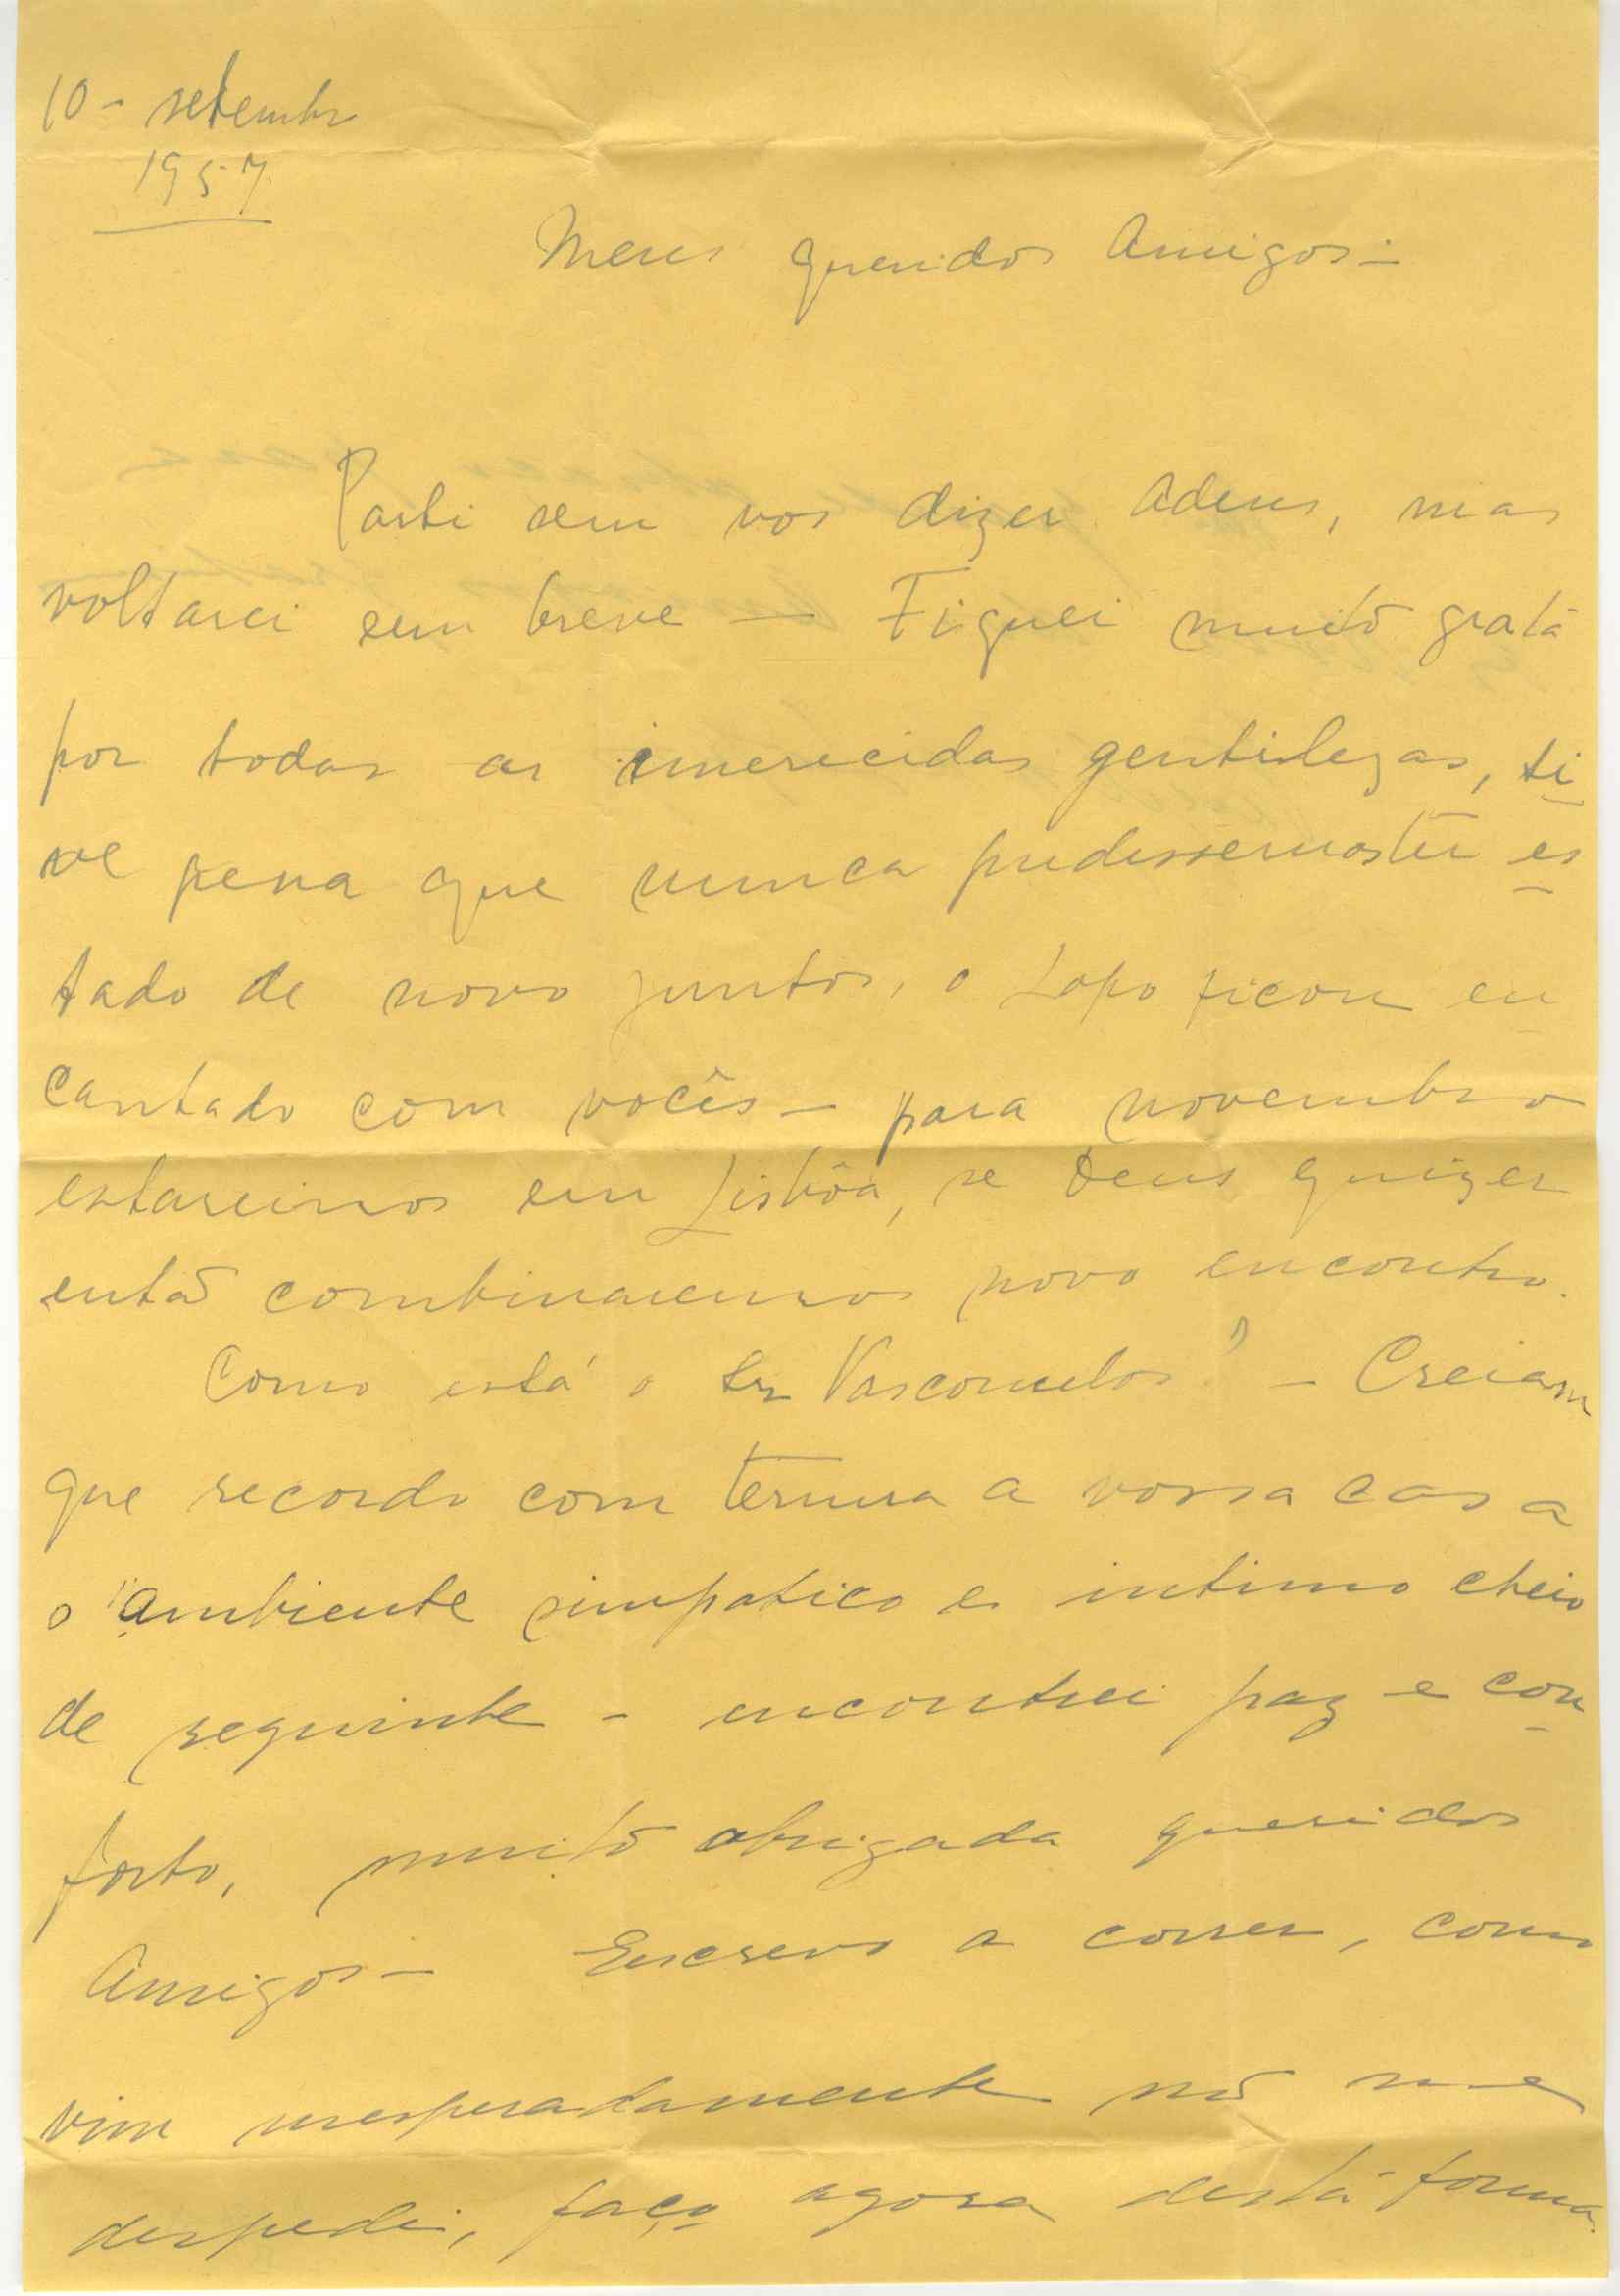 10 - setembr
1957
Meus queridos Amigos -
Parti sem vos dizer adeus, mas
voltarei em breve - Fiquei muito grata
por todas as imerecidas gentilezas, ti
ve pena que nunca pudessemos ter es
tado de novo juntos, o Lopo ficou en
cantado com vocês - para novembro
estaremos em Lisbôa, se Deus quizer
então combinaremos novo encontro.
Como está o Vasconcelos? - Creiam
que recordo com ternura a vossa casa
o ambiente simpatico e intimo cheio
de requinte - encontrei paz e con
forto, muito obrigada queridos
Amigos - Escrevo a correr, como
vim inesperadamente não me
despedi, faço agora desta forma.